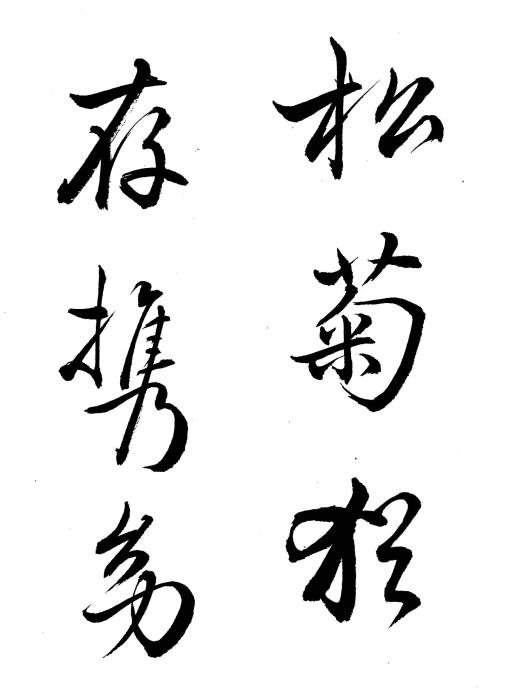 松菊犹
存携幼